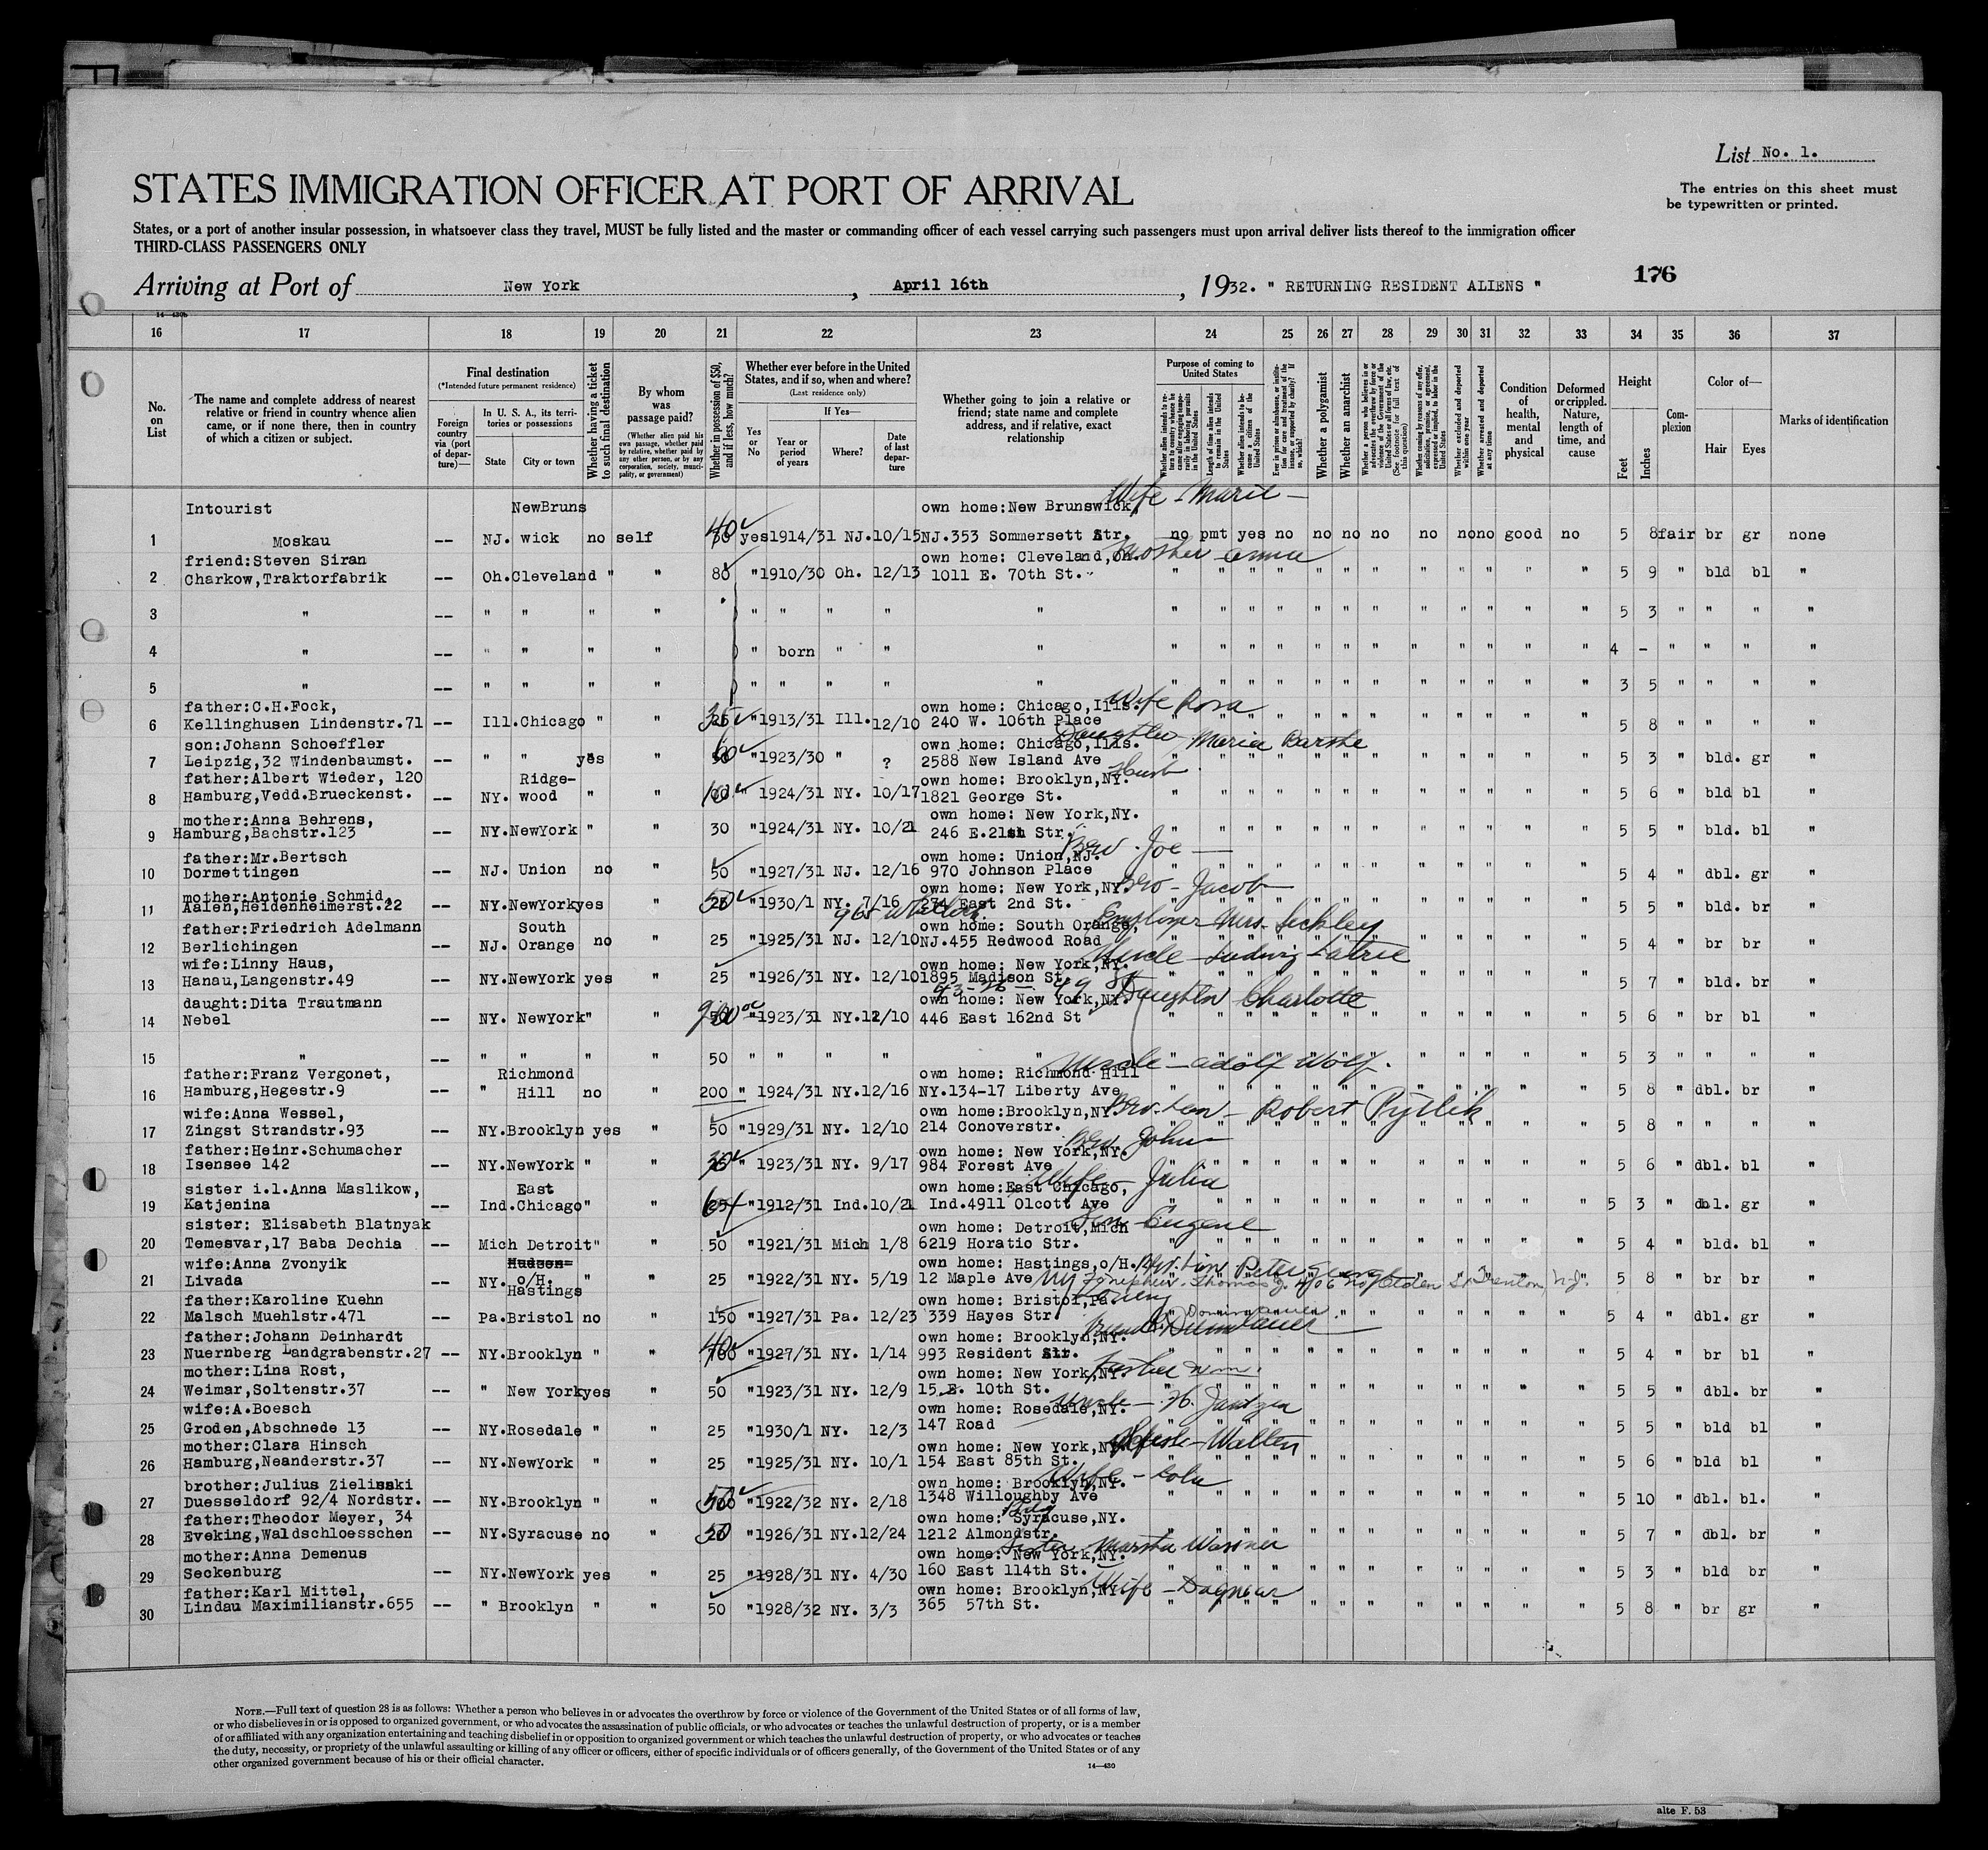 List No. 1.
STATES IMMIGRATION OFFICER AT PORT OF ARRIVAL
The entries on this sheet must
be typewritten or printed.
States, or a port of another insular possession, in whatsoever class they travel, MUST be fully listed and the master or commanding officer of each vessel carrying such passengers must upon arrival deliver lists thereof to the immigration officer
THIRD-CLASS PASSENGERS ONLY
Arriving at Port of New York, April 16th, 1932. " RETURNING RESIDENT ALIENS "
176
14—430b
16 17 18 19 20 21 22 23 24 25 26 27 28 29 30 31 32 33 34 35 36 37
No. on List
The name and complete address of nearest relative or friend in country whence alien came, or if none there, then in country of which a citizen or subject.
Final destination
(*Intended future permanent residence)
Foreign country via (port of departure)—
In U. S. A., its territories or possessions
State City or town
Whether having a ticket to such final destination
By whom was passage paid?
(Whether alien paid his own passage, whether paid by relative, whether paid by any other person, or by any corporation, society, municipality, or government)
Whether in possession of $50, and if less, how much?
Whether ever before in the United States, and if so, when and where?
(Last residence only)
Yes or No
If Yes—
Year or period of years
Where?
Date of last departure
Whether going to join a relative or friend; state name and complete address, and if relative, exact relationship
Purpose of coming to United States
Whether alien intends to return to country whence he came after engaging temporarily in laboring pursuits in the United States
Length of time alien intends to remain in the United States
Whether alien intends to become a citizen of the United States
Ever in prison or almshouse, or institution for care and treatment of the insane, or supported by charity? If so, which?
Whether a polygamist
Whether an anarchist
Whether a person who believes in or advocates the overthrow by force or violence of the Government of the United States or all forms of law, etc. (See footnote for full text of this question)
Whether coming by reasons of any offer, solicitation, promise, or agreement, expressed or implied, to labor in the United States
Whether excluded and deported within one year
Whether arrested and deported at any time
Condition of health, mental and physical
Deformed or crippled. Nature, length of time, and cause
Height
Feet Inches
Complexion
Color of—
Hair Eyes
Marks of identification
Intourist NewBruns own home:New Brunswick, Wife - Marie -
1 Moskau -- NJ. wick no self 40 yes1914/31 NJ.10/15 NJ.353 Sommersett Str. no pmt yes no no no no no no no good no 5 8 fair br gr none
friend:Steven Siran own home: Cleveland,Oh. Mother
2 Charkow,Traktorfabrik -- Oh.Cleveland " " 80 "1910/30 Oh. 12/13 1011 E. 70th St. " " " " " " " " " " " " 5 9 " bld bl "
3 " -- " " " " " " " " " " " " " " " " " " " " " 5 3 " " " "
4 " -- " " " " " born " " " " " " " " " " " " " " " 4 - " " " "
5 " -- " " " " " " " " " " " " " " " " " " " " " 3 5 " " " "
father:C.H.Fock, own home: Chicago,Ills. Wife Rosa
6 Kellinghusen Lindenstr.71 -- Ill.Chicago " " 35 "1913/31 Ill. 12/10 240 W. 106th Place " " " " " " " " " " " " 5 8 " " " "
son:Johann Schoeffler own home: Chicago,Ills. Daughter Maria Barthe
7 Leipzig,32 Windenbaumst. -- " " yes " "1923/30 " ? 2588 New Island Ave " " " " " " " " " " " " 5 3 " bld. gr "
father:Albert Wieder, 120 Ridge- own home: Brooklyn,NY. Husb
8 Hamburg,Vedd.Brueckenst. -- NY. wood " " " 1924/31 NY. 10/17 1821 George St. " " " " " " " " " " " " 5 6 " bld bl "
mother:Anna Behrens, own home: New York,NY.
9 Hamburg,Bachstr.123 -- NY.NewYork " " 30 "1924/31 NY. 10/21 246 E.21st Str. " " " " " " " " " " " " 5 5 " bld. bl "
father:Mr.Bertsch own home: Union,NJ. Bro. Joe -
10 Dormettingen -- NJ. Union no " 50 "1927/31 NJ. 12/16 970 Johnson Place " " " " " " " " " " " " 5 4 " dbl. gr "
mother:Antonie Schmid, own home: New York,NY. Bro - Jacob
11 Aalen,Heidenheimerst.22 -- NY.NewYork yes " 50 "1930/1 NY. 7/16 274 East 2nd St. " " " " " " " " " " " " 5 5 " bld. br "
father:Friedrich Adelmann South own home: South Orange, Employer Mrs.
12 Berlichingen -- NJ. Orange no " 25 "1925/31 NJ. 12/10 NJ.455 Redwood Road " " " " " " " " " " " " 5 4 " br br "
wife:Linny Haus, own home: New York,NY. Uncle - Ludwig
13 Hanau,Langenstr.49 -- NY.NewYork yes " 25 "1926/31 NY. 12/10 1895 Madison St. " " " " " " " " " " " " 5 7 " bld. br "
daught:Dita Trautmann own home: New York,NY. Daughter Charlotte
14 Nebel -- NY. NewYork " " "1923/31 NY.12/10 446 East 162nd St " " " " " " " " " " " " 5 6 " br bl "
15 " -- " " " " 50 " " " " " " " " " " " " " " " " " " 5 3 " " " "
father:Franz Vergonet, Richmond own home: Richmond Hill Uncle - Adolf Wolf.
16 Hamburg,Hegestr.9 -- " Hill no " 200 " 1924/31 NY.12/16 NY.134-17 Liberty Ave " " " " " " " " " " " " 5 8 " dbl. br "
wife:Anna Wessel, own home:Brooklyn,NY. Bro. Robert
17 Zingst Strandstr.93 -- NY.Brooklyn yes " 50 "1929/31 NY. 12/10 214 Conoverstr. " " " " " " " " " " " " 5 8 " " " "
father:Heinr.Schumacher own home: New York,NY. Bro John
18 Isensee 142 -- NY.NewYork " " 30 " 1923/31 NY. 9/17 984 Forest Ave " " " " " " " " " " " " 5 6 " dbl. bl "
sister i.l.Anna Maslikow, East own home:East Chicago, Wife - Julia
19 Katjenina -- Ind.Chicago " " "1912/31 Ind.10/21 Ind.4911 Olcott Ave " " " " " " " " " " " " 5 3 " dbl. gr "
sister: Elisabeth Blatnyak own home: Detroit,Mich Son - Eugene
20 Temesvar,17 Baba Dechia -- Mich Detroit " " 50 "1921/31 Mich 1/8 6219 Horatio Str. " " " " " " " " " " " " 5 4 " bld. bl "
wife:Anna Zvonyik Hudson- own home: Hastings,o/H.
21 Livada -- NY. o/H. Hastings " " 25 "1922/31 NY. 5/19 12 Maple Ave Trenton, N.J. 5 8 " br br "
father:Karoline Kuehn own home: Bristol,Pa.
22 Malsch Muehlstr.471 -- Pa.Bristol no " 150 "1927/31 Pa. 12/23 339 Hayes Str. " " " " " " " " " " " " 5 4 " dbl. gr "
father:Johann Deinhardt own home: Brooklyn,NY.
23 Nuernberg Landgrabenstr.27 -- NY.Brooklyn " " 40 "1927/31 NY. 1/14 993 Resident Str. " " " " " " " " " " " " 5 4 " br bl "
mother:Lina Rost, own home: New York,NY.
24 Weimar,Soltenstr.37 -- " New York yes " 50 "1923/31 NY. 12/9 15 E. 10th St. " " " " " " " " " " " " 5 5 " dbl. br "
wife:A.Boesch own home: Rosedale,NY. Uncle - H.
25 Groden,Abschnede 13 -- NY.Rosedale " " 25 "1930/1 NY. 12/3 147 Road " " " " " " " " " " " " 5 5 " bld bl "
mother:Clara Hinsch own home: New York,NY.
26 Hamburg,Neanderstr.37 -- NY.NewYork " " 25 "1925/31 NY. 10/1 154 East 85th St. " " " " " " " " " " " " 5 6 " bld bl "
brother:Julius Zielinski own home: Brooklyn,NY. Wife - Lola
27 Duesseldorf 92/4 Nordstr. -- NY.Brooklyn " " 50 "1922/32 NY. 2/18 1348 Willoughby Ave " " " " " " " " " " " " 5 10 " dbl. bl. "
father:Theodor Meyer, 34 own home: Syracuse,NY.
28 Eveking,Waldschloesschen -- NY.Syracuse no " 50 "1926/31 NY.12/24 1212 Almondstr. " " " " " " " " " " " " 5 7 " dbl. br "
mother:Anna Demenus own home: New York,NY. Sister Martha
29 Seckenburg -- NY.NewYork yes " 25 "1928/31 NY. 4/30 160 East 114th St. " " " " " " " " " " " " 5 3 " bld br "
father:Karl Mittel, own home: Brooklyn,NY. Wife - Dagmar
30 Lindau Maximilianstr.655 -- " Brooklyn " " 50 "1928/32 NY. 3/3 365 57th St. " " " " " " " " " " " " 5 8 " br gr "
NOTE.—Full text of question 28 is as follows: Whether a person who believes in or advocates the overthrow by force or violence of the Government of the United States or of all forms of law,
or who disbelieves in or is opposed to organized government, or who advocates the assassination of public officials, or who advocates or teaches the unlawful destruction of property, or is a member
of or affiliated with any organization entertaining and teaching disbelief in or opposition to organized government or which teaches the unlawful destruction of property, or who advocates or teaches
the duty, necessity, or propriety of the unlawful assaulting or killing of any officer or officers, either of specific individuals or of officers generally, of the Government of the United States or of any
other organized government because of his or their official character.
14—430
alte F. 53